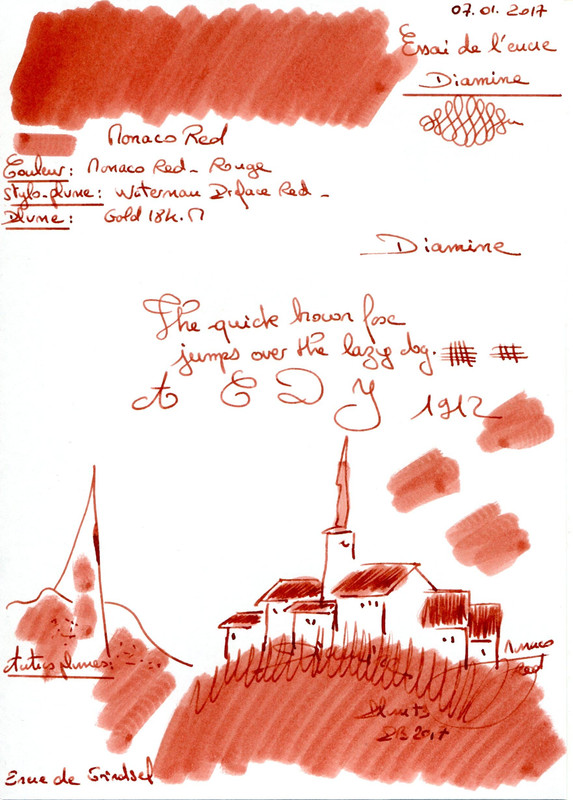 07.01.2017
Essai de l'encre
Diamine
Monaco Red
Couleur: Monaco Red - Rouge
Stylo-plume: Waterman Red -
Plume: Gold 18k. M
Diamine
The quick brown fox
jumps over the lazy dog.
A E D Y 1912
Monaco
Red
Autres plumes:
2017
Encre de